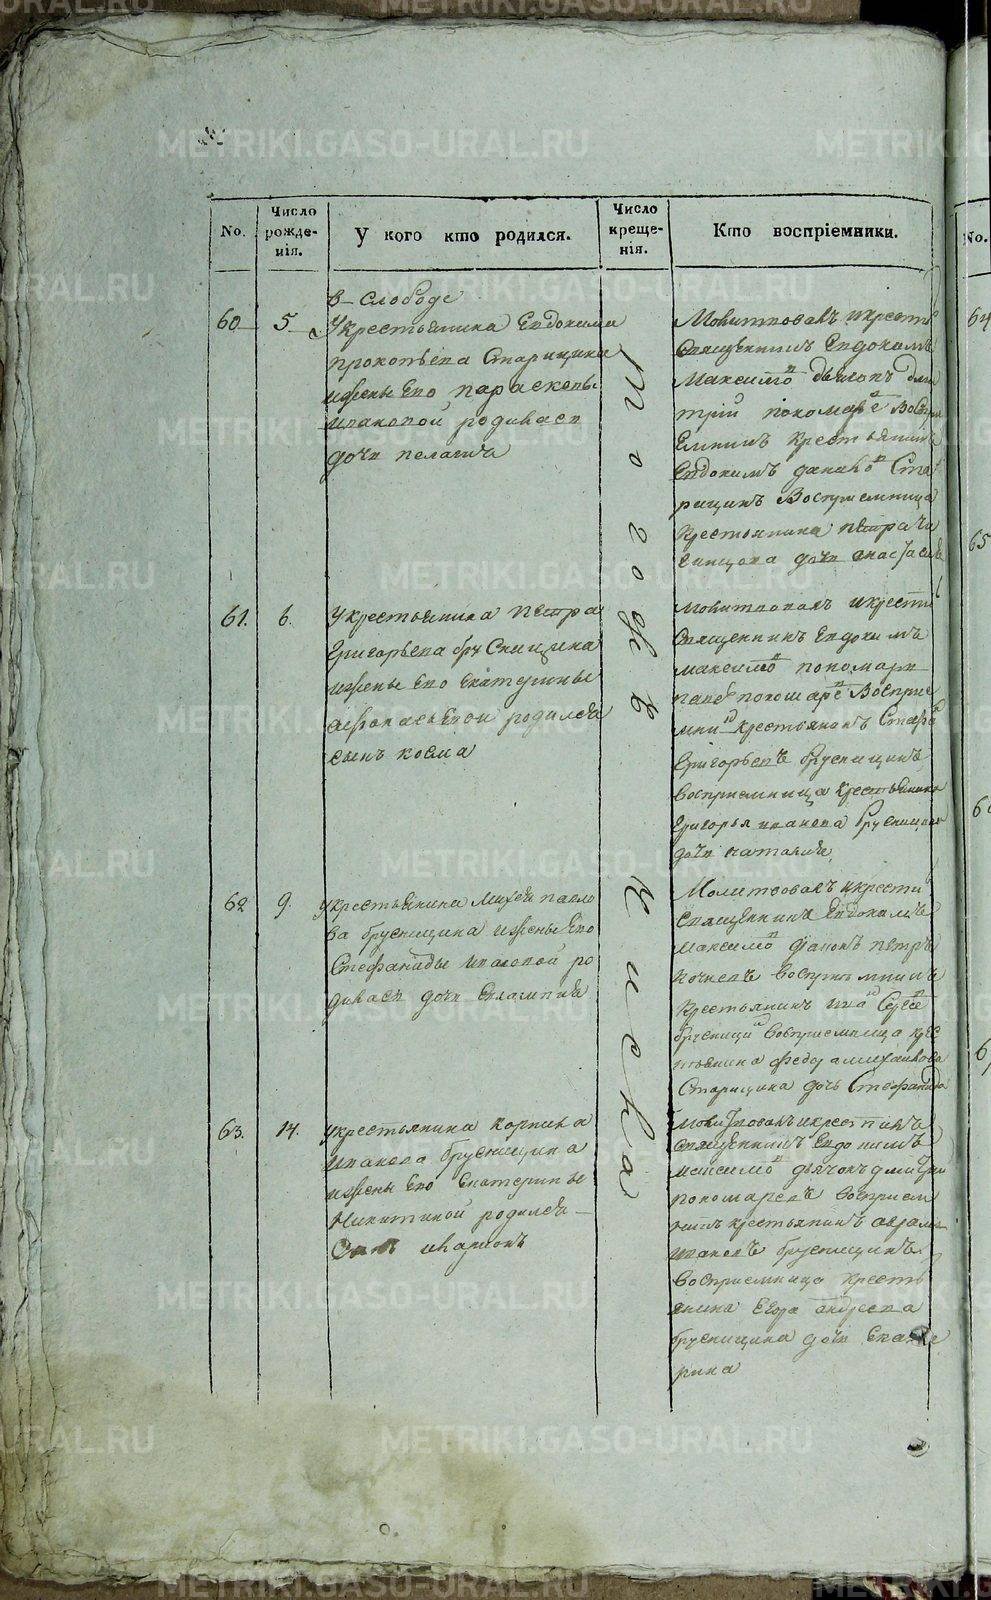 No.
Число рожде-нія.
У кого кто родился.
Число креще-нія.
Кто воспріемники.
No.
в слободе
60
5
У крестьянина Евдокима
прокопьева Старицина
ижены Его параскевы
ивановой родилась
дочь пелагия
Того же числа
Молитвовалъ икрести
Священникъ Евдокимъ
Максимо дьячокъ дми
трій пономаре Воспри
Емникъ крестьянинъ
Евдокимъ данило Ста
рицинъ Восприемница
Крестьянина петра
дочь анастасия
61.
6.
У крестьянина петра
Григорьева брусницина
ижены Его Екатерины
афанасьевой родился
сынъ косма
молитвовалъ икрести
Священникъ Евдокимъ
максимо пономарь
паве пономаре Восприе
мни крестьянинъ Стефа
Григорьевъ брусницинъ
восприемница крестьянина
Григорья иванова брусницина
дочь наталия
62
9.
У крестьянина михея павло
ва брусницина ижены Его
Стефаниды ивановой ро
дилась дочь Евлампия
Молитвовалъ икрести
Священникъ Евдокимъ
максимо диаконъ петръ
кочневъ восприемникъ
крестьянинъ ива Сергее
брусници восприемница кре
стьянина федора михайлова
Старицина дочь Стефанида
63.
14.
У крестьянина корнила
иванова брусницина
ижены Его Екатерины
Никитиной родился
Сынъ иларионъ
молитвовалъ икрестилъ
священникъ Евдокимъ
максимо дьячокъ дмитрий
пономаревъ восприем
никъ крестьянинъ аврамъ
ивановъ брусницинъ
восприемница кресть
янина Егора андреева
брусницина дочь Екате
рина
64
65
METRIKI.GASO-URAL.RU